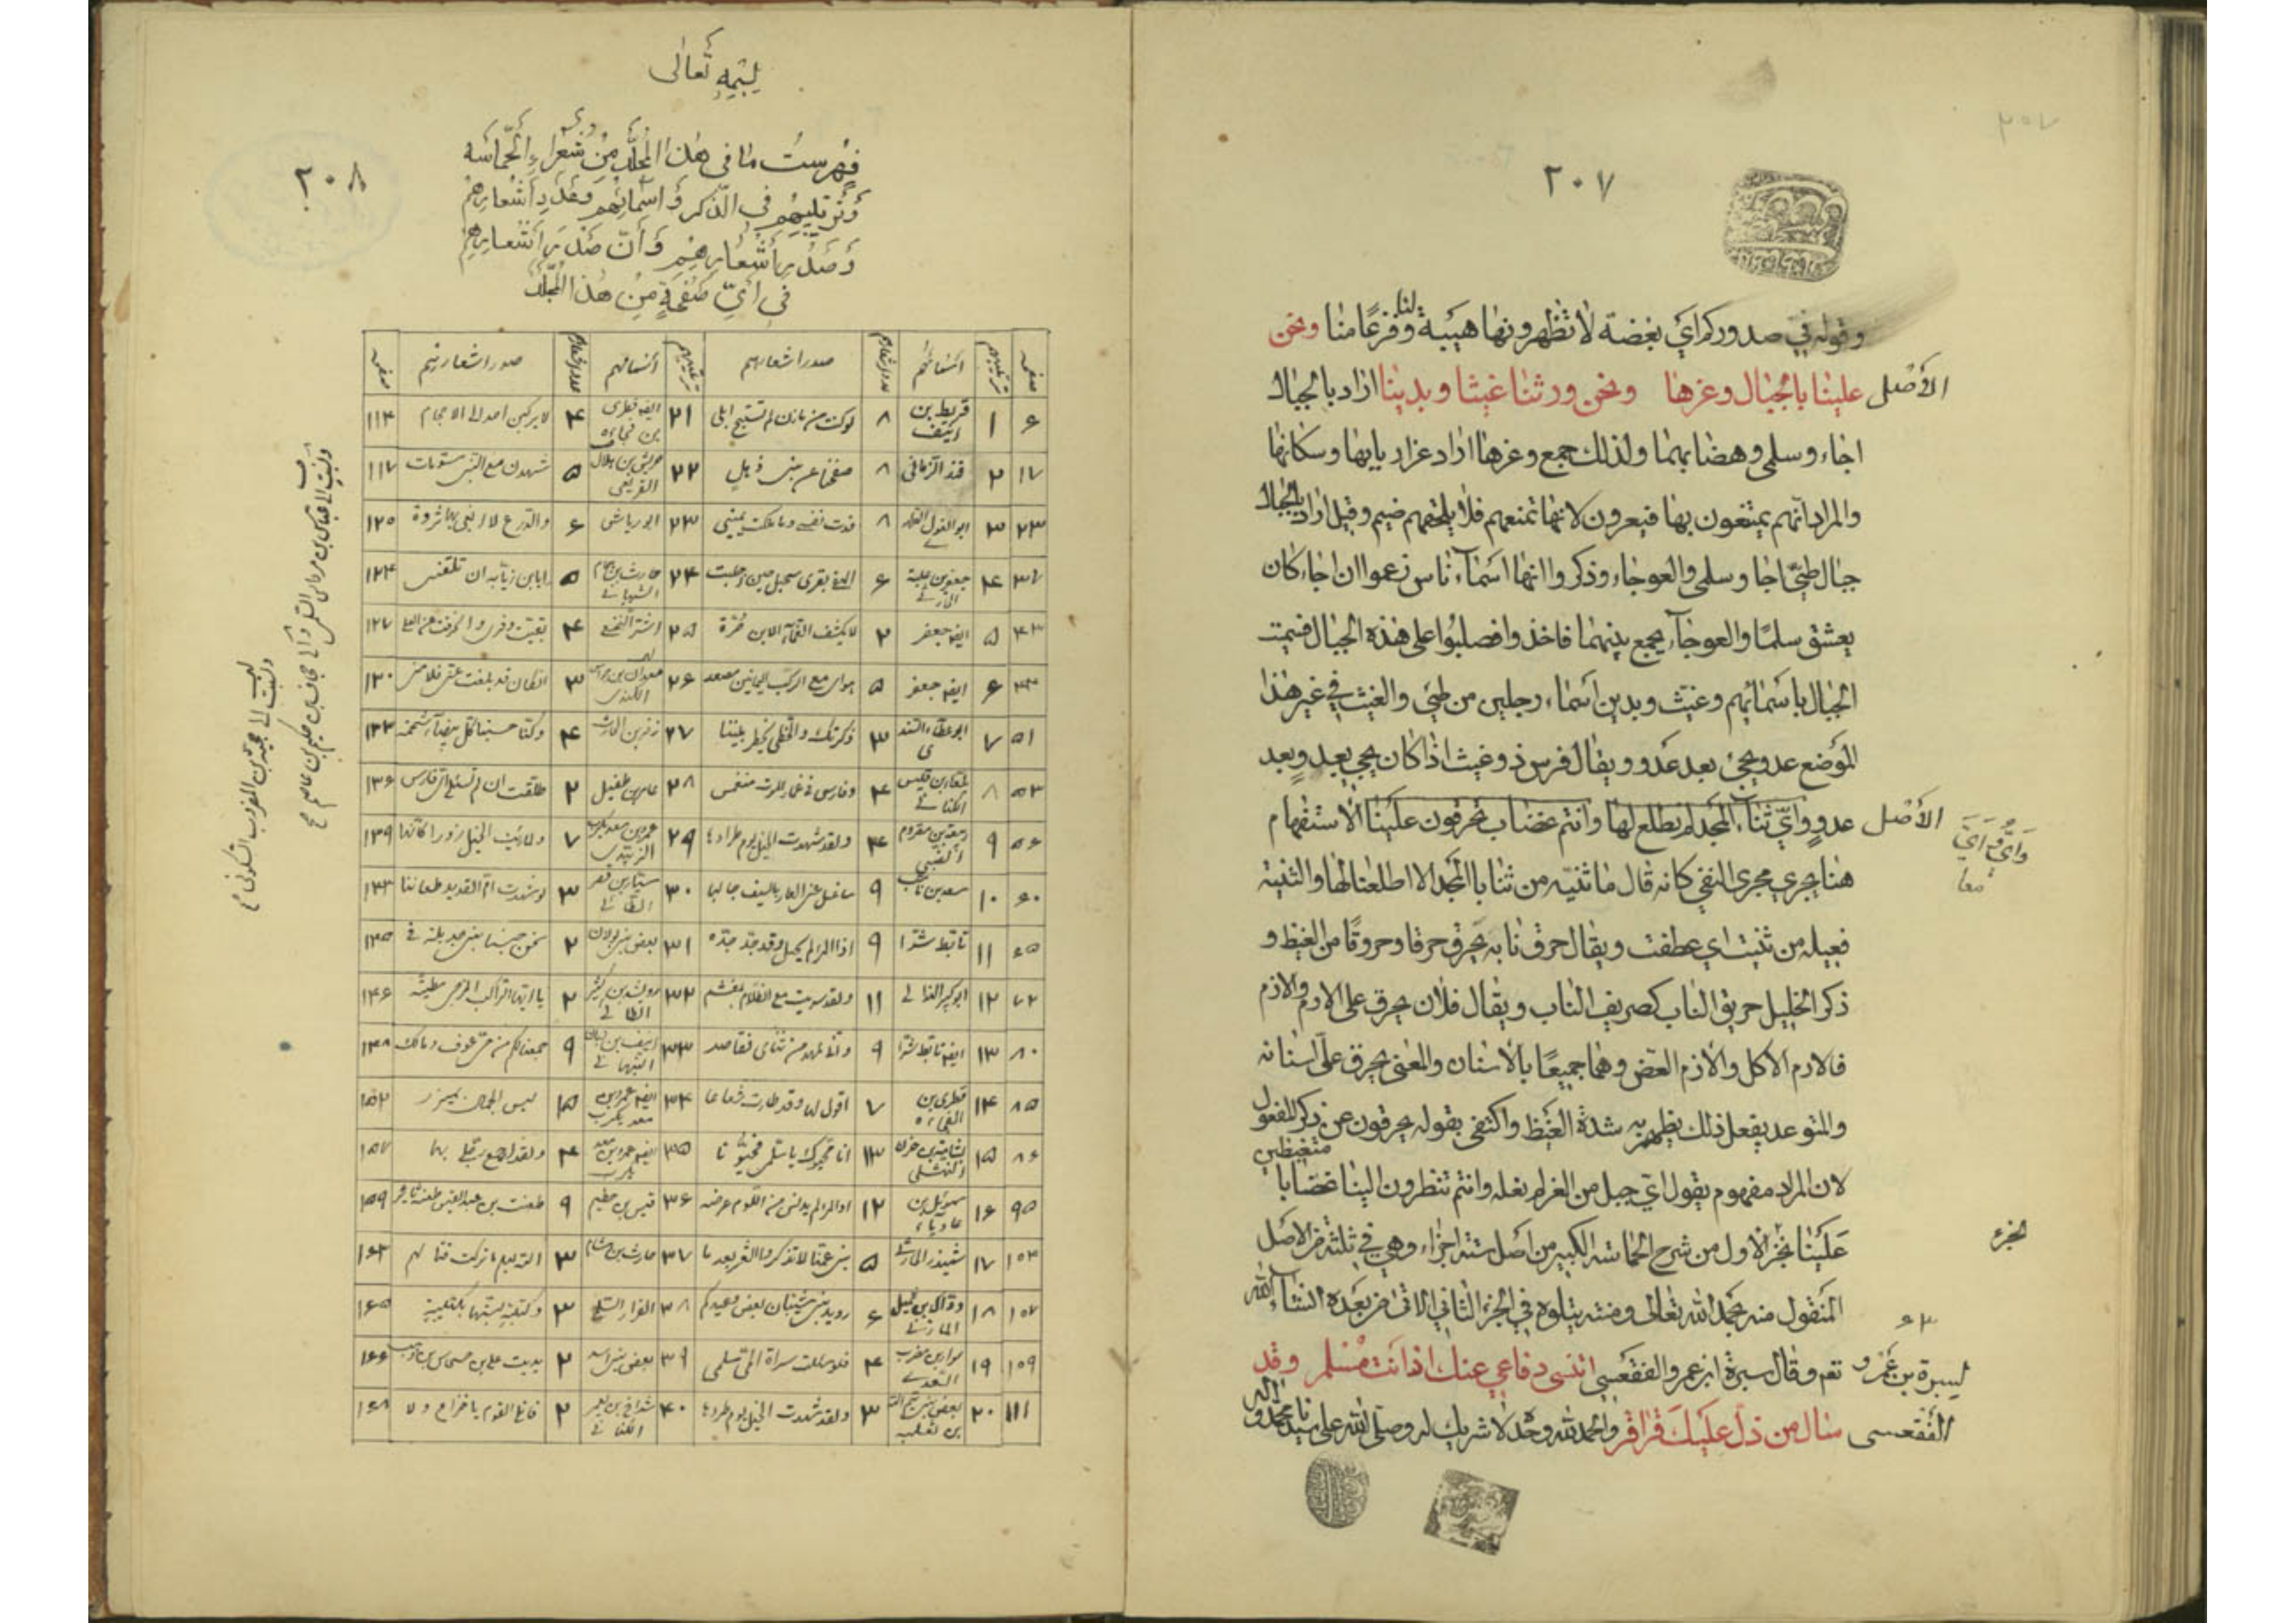 ٢٠٧
وقوله في صدوركم اي بغضة لا تظهرونها هيبة لنا وفزعًا منا ونحن
الأصل
علينا بالجبال وعزها ونحن ورثنا غيثا وبدينا اراد بالجبال
اجاء وسلمى وهضابهما ولذلك جمع وعزها اراد عز اربابها وسكانها
والمراد انهم يمتنعون بها فيعزون لانها تمنعهم فلا يلحقهم ضيم وقيل اراد بالجبال
جبال طيئ اجا وسلمى والعوجاء وذكروا انها اسماء ناس زعموا ان اجاء كان
يعشق سلمى والعوجاء يجمع بينهما فاخذوا فصلبوا على هذه الجبال فسميت
الجبال باسمائهم وغيث وبدين اسماء رجلين من طيئ والغيث في غير هذا
الموضع عدو يجئ بعد عدو ويقال فرس ذو غيث اذا كان يجئ بعد
الأصل
عدو واي ثنايا المجد لم نطلع لها وانتم غضاب تحرقون علينا الاستفهام
وَأيُّ وَأيَّ
معا
هنا يجري مجرى النفي كانه قال ما ثنية من ثنايا المجد الا اطلعنا لها والثنية
فعيلة من ثنيت اي عطفت ويقال حرق نابه يحرق حرقا وحروقًا من الغيظ و
ذكر الخليل حريق الناب كصريف الناب ويقال فلان يحرق على الارم والازم
فالارم الاكل والازم العض وهما جميعًا بالاسنان والمعنى يحرق على اسنانه
والمتوعد يفعل ذلك يظهر به شدة الغيظ واكتفى بقوله يحرقون عن ذكر المفعول
لان المراد مفهوم يقول اي جبل من العز لم نعله وانتم تنظرون الينا غضابا
متغيظين
علينا نجز الاول من شرح الحماسة الكبير من اصل ستة اجزاء وهي في ثلثة من الاصل
المنقول منه بحمد الله تعالى ومنه يتلوه في الجزء الثاني الاتي من بعده انشاء الله
لسبرة بن عمرو
نعم وقال سبرة ابن عمرو الفقعسي اتنسى دفاعي عنك اذ انت مسلم وقد
الفقعسى
سال من ذل عليك قراقر والحمد لله وحده لا شريك له وصلى الله على سيدنا محمد واله
بسمه تعالى
٢٠٨
فهرست ما في هذا المجلد من شعراء الحماسة
وترتيبهم في الذكر واسمائهم وعدد اشعارهم
وصدر اشعارهم وأن صدر اشعارهم
في اي صفحة من هذا المجلد
صفحه ترتيبهم اسمائهم عدد اشعارهم صدر اشعارهم ترتيبهم اسمائهم عدد اشعارهم صدر اشعارهم صفحه
٦ ١ قريط بن انيف ٨ لو كنت من مازن لم تستبح ابلي ٢١ ايضا قطري بن فجاءة ٤ لا يركنن احد الى الاحجام ١١٤
١٧ ٢ فند الزماني ٨ صفحنا عن بني ذهل ٢٢ حريش بن هلال القريعي ٥ شهدن مع النبي مسومات ١١٧
٢٣ ٣ ابو الغول ٨ فدت نفسي وما ملكت يميني ٢٣ ابو رياش ٦ والدرع لا ابغي بها ثروة ١٢٠
٣٧ ٤ جعفر بن علبة ٦ الهفى بقرى سحبل حين احلبت ٢٤ حارث بن همام الشيباني ٥ ايا ابن زيابة ان تلقني ١٢٤
٤٣ ٥ ايضا جعفر ٢ لا يكشف الغماء الا ابن حرة ٢٥ اشتر النخعي ٤ بقيت وفري وانحرفت عن العلى ١٢٧
٤٤ ٦ ايضا جعفر ٥ هواي مع الركب اليمانين مصعد ٢٦ معدان بن جواس الكندي ٣ ان كان ما بلغت عني فلامني ١٣٠
٥١ ٧ ابو عطاء السندى ٣ ذكرتك والخطي يخطر بيننا ٢٧ زفر بن الحارث ٤ وكنا حسبنا كل بيضاء شحمة ١٣٣
٥٣ ٨ بلعاء بن قيس الكناني ٤ وفارس في غمار الموت منغمس ٢٨ عامر بن طفيل ٢ طلقت ان لم تسئلي اي فارس ١٣٦
٥٦ ٩ ربيعة بن مقروم الضبي ٤ ولقد شهدت الخيل يوم طرادها ٢٩ عمرو بن معديكرب الزبيدي ٧ ولما رأيت الخيل زورا كأنها ١٣٩
٦٠ ١٠ سعد بن ناشب ٩ ساغسل عني العار بالسيف جالبا ٣٠ سيار بن قصير الطائي ٣ لو شهدت ام القديد طعاننا ١٤٣
٦٥ ١١ تابط شرا ٩ اذا المرء لم يحتل وقد جد جده ٣١ بعض بني بولان ٢ نحن حبسنا بني جديلة في ١٤٥
٧٢ ١٢ ابو كبير الهذلي ١١ ولقد سريت مع الظلام بمغشم ٣٢ رويشد بن كثير الطائي ٢ يا ايها الراكب المزجي مطيته ١٤٦
٨٠ ١٣ ايضا تابط شرا ٩ واني لمهد من ثنائي فقاصد ٣٣ انيف بن زبان النبهاني ٩ جمعنا لكم من حي عوف ومالك ١٤٨
٨٥ ١٤ قطري بن الفجاءة ٧ اقول لها وقد طارت شعاعا ٣٤ ايضا عمرو بن معديكرب ١٥ ليس الجمال بميزر ١٥٢
٨٦ ١٥ بشامة بن حزن النهشلي ١٣ انا محيوك يا سلمى فحيينا ٣٥ ايضا عمرو بن معديكرب ٤ ولقد اجمع رجلي بها ١٥٧
٩٥ ١٦ سموئل بن عادياء ١٢ اذا المرء لم يدنس من اللوم عرضه ٣٦ قيس بن خطيم ٩ طعنت ابن عبد القيس طعنة ثائر ١٥٩
١٠٣ ١٧ شميذر الحارثي ٥ بني عمنا لا تذكروا الشعر بعد ما ٣٧ حارث بن هشام ٣ الله يعلم ما تركت قتالهم ١٦٣
١٠٧ ١٨ وداك بن ثميل المازني ٦ رويد بني شيبان بعض وعيدكم ٣٨ الفرار السلمي ٣ وكتيبة لبستها بكتيبة ١٦٥
١٠٩ ١٩ سوار بن مضرب السعدي ٤ فلو سالت سراة الحي سلمى ٣٩ بعض بني اسد ٢ يديت على بن حسحاس بن وهب ١٦٦
١١١ ٢٠ بعض بني تيم الله بن ثعلبه ٣ ولقد شهدت الخيل يوم طرادها ٤٠ شداخ بن يعمر الكناني ٢ قاتلي القوم يا خزاع ولا ١٦٨